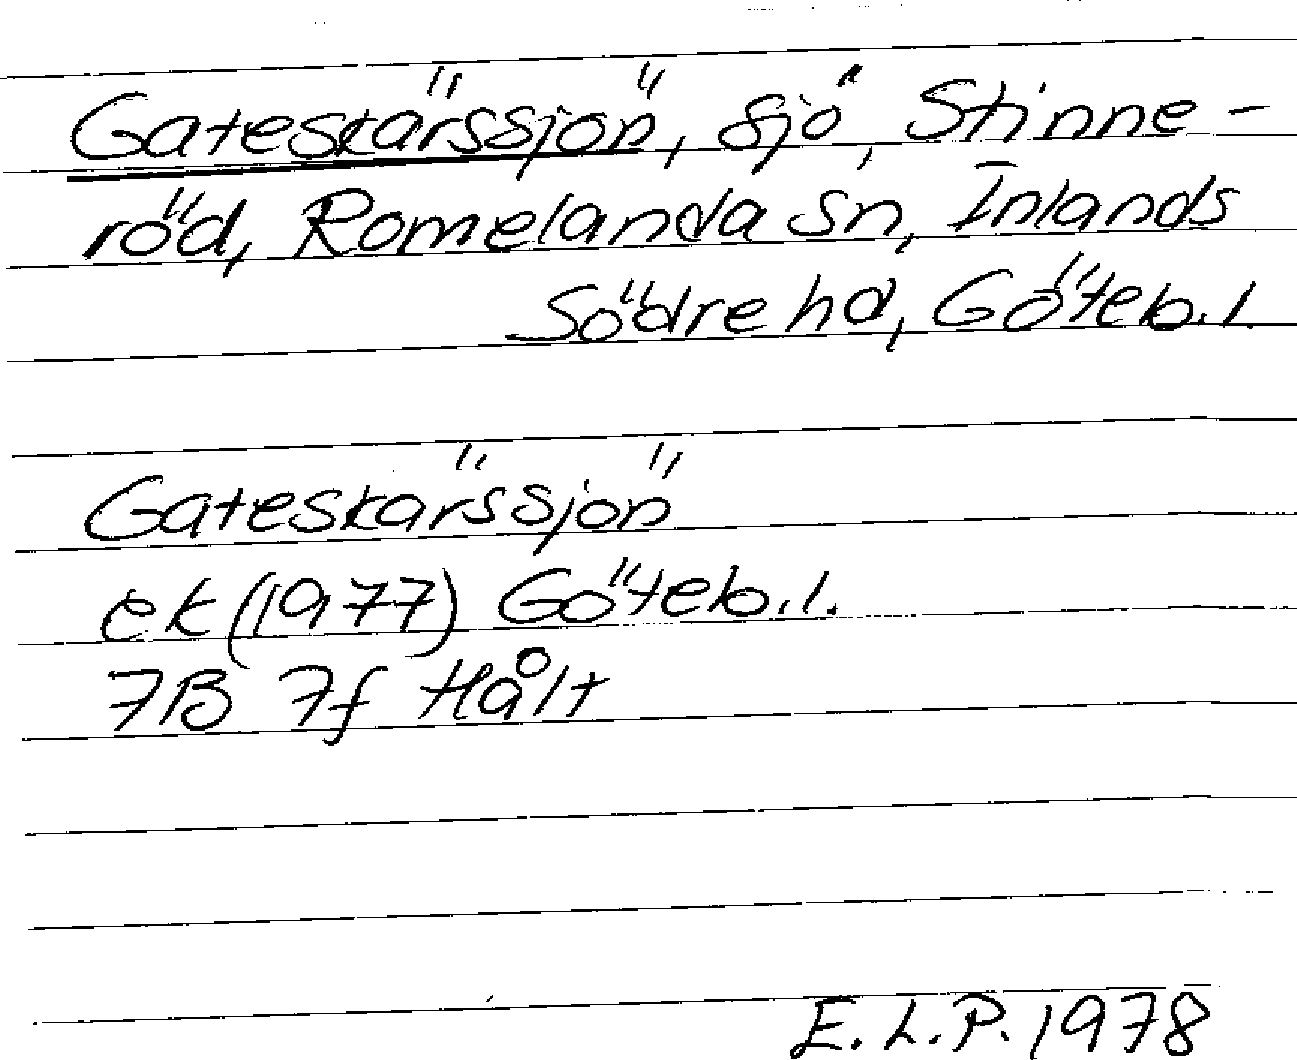 Gateskärssjön, sjö, Stinne-
röd, Romelanda sn, Inlands
Södre hd, Göteb. l.
Gateskärssjön
ek (1977) Göteb. l.
7B 7f Hålt
E. L. P. 1978